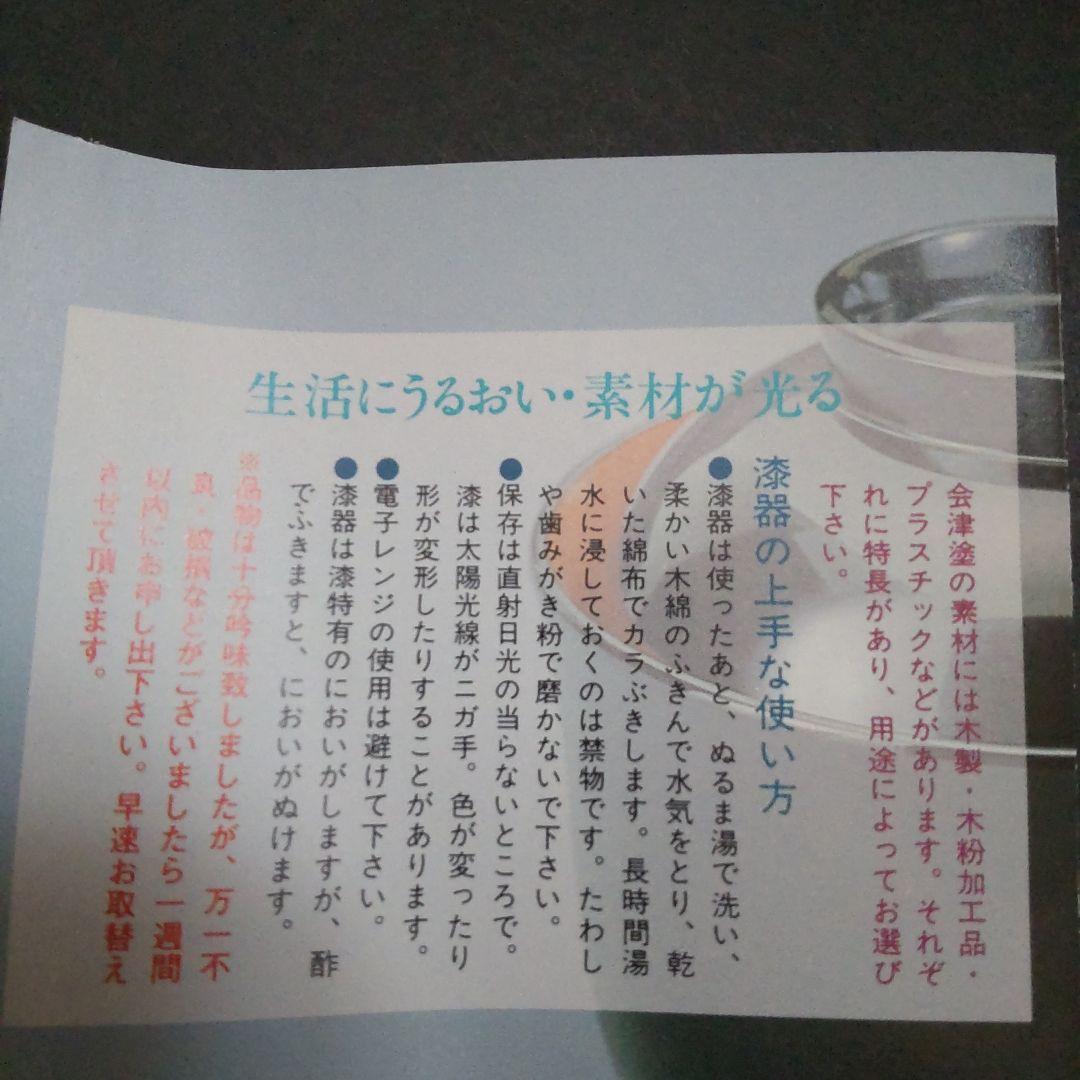 生活にうるおい・素材が光る
会津塗の素材には木製・木粉加工品・
プラスチックなどがあります。それぞ
れに特長があり、用途によってお選び
下さい。
漆器の上手な使い方
●漆器は使ったあと、ぬるま湯で洗い、
柔かい木綿のふきんで水気をとり、乾
いた綿布でカラぶきします。長時間湯
水に浸しておくのは禁物です。たわし
や歯みがき粉で磨かないで下さい。
●保存は直射日光の当らないところで。
漆は太陽光線がニガ手。色が変ったり
形が変形したりすることがあります。
●電子レンジの使用は避けて下さい。
●漆器は漆特有のにおいがしますが、酢
でふきますと、においがぬけます。
※品物は十分吟味致しましたが、万一不
良・破損などがございましたら一週間
以内にお申し出下さい。早速お取替え
させて頂きます。